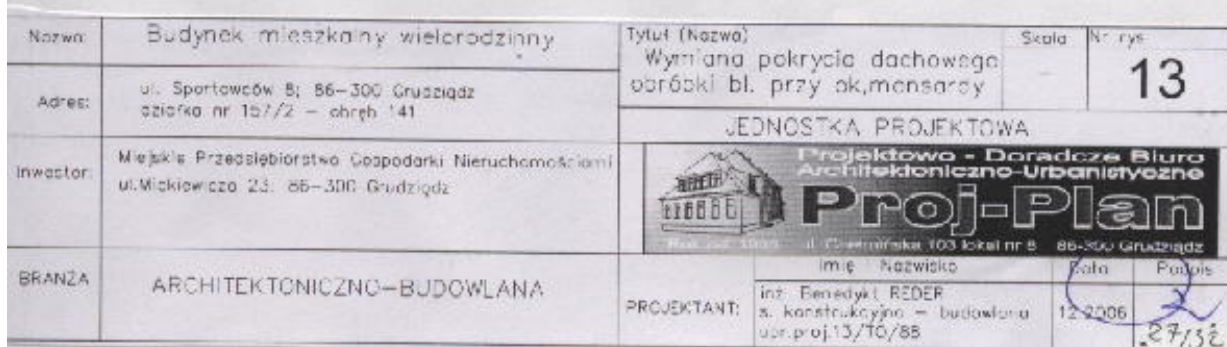 Nazwa: Budynek mieszkalny wielorodzinny
Adres: ul. Sportowców 8; 86-300 Grudziądz
działka nr 157/2 - obręb 141
Inwestor: Miejskie Przedsiębiorstwo Gospodarki Nieruchomościami
ul.Mickiewicza 23. 86-300 Grudziądz
BRANŻA ARCHITEKTONICZNO-BUDOWLANA
Tytuł (Nazwa)
Wymiana pokrycia dachowego
obróbki bl. przy ok,mansardy
Skala
-
Nr rys
13
JEDNOSTKA PROJEKTOWA
Projektowo - Doradcze Biuro
Architektoniczno-Urbanistyczne
Proj-Plan
ul. 103 lokal nr 8 86-300 Grudziądz
Imię Nazwisko Data Podpis
PROJEKTANT: inż. Benedykt REDER
s. konstrukcyjno - budowlana
upr.proj.13/TO/88
12.2006